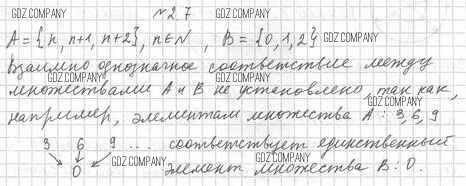 №27
A = {n, n+1, n+2}, n∈N , B = {0, 1, 2}
Взаимно однозначное соответствие между
множествами A и B не установлено, так как,
например, элементам множества A: 3, 6, 9
3 6 9 ... соответствует единственный
0 элемент множества B: 0.
GDZ.COMPANY
GDZ.COMPANY
GDZ.COMPANY
GDZ.COMPANY
GDZ.COMPANY
GDZ.COMPANY
GDZ.COMPANY
GDZ.COMPANY
GDZ.COMPANY
GDZ.COMPANY